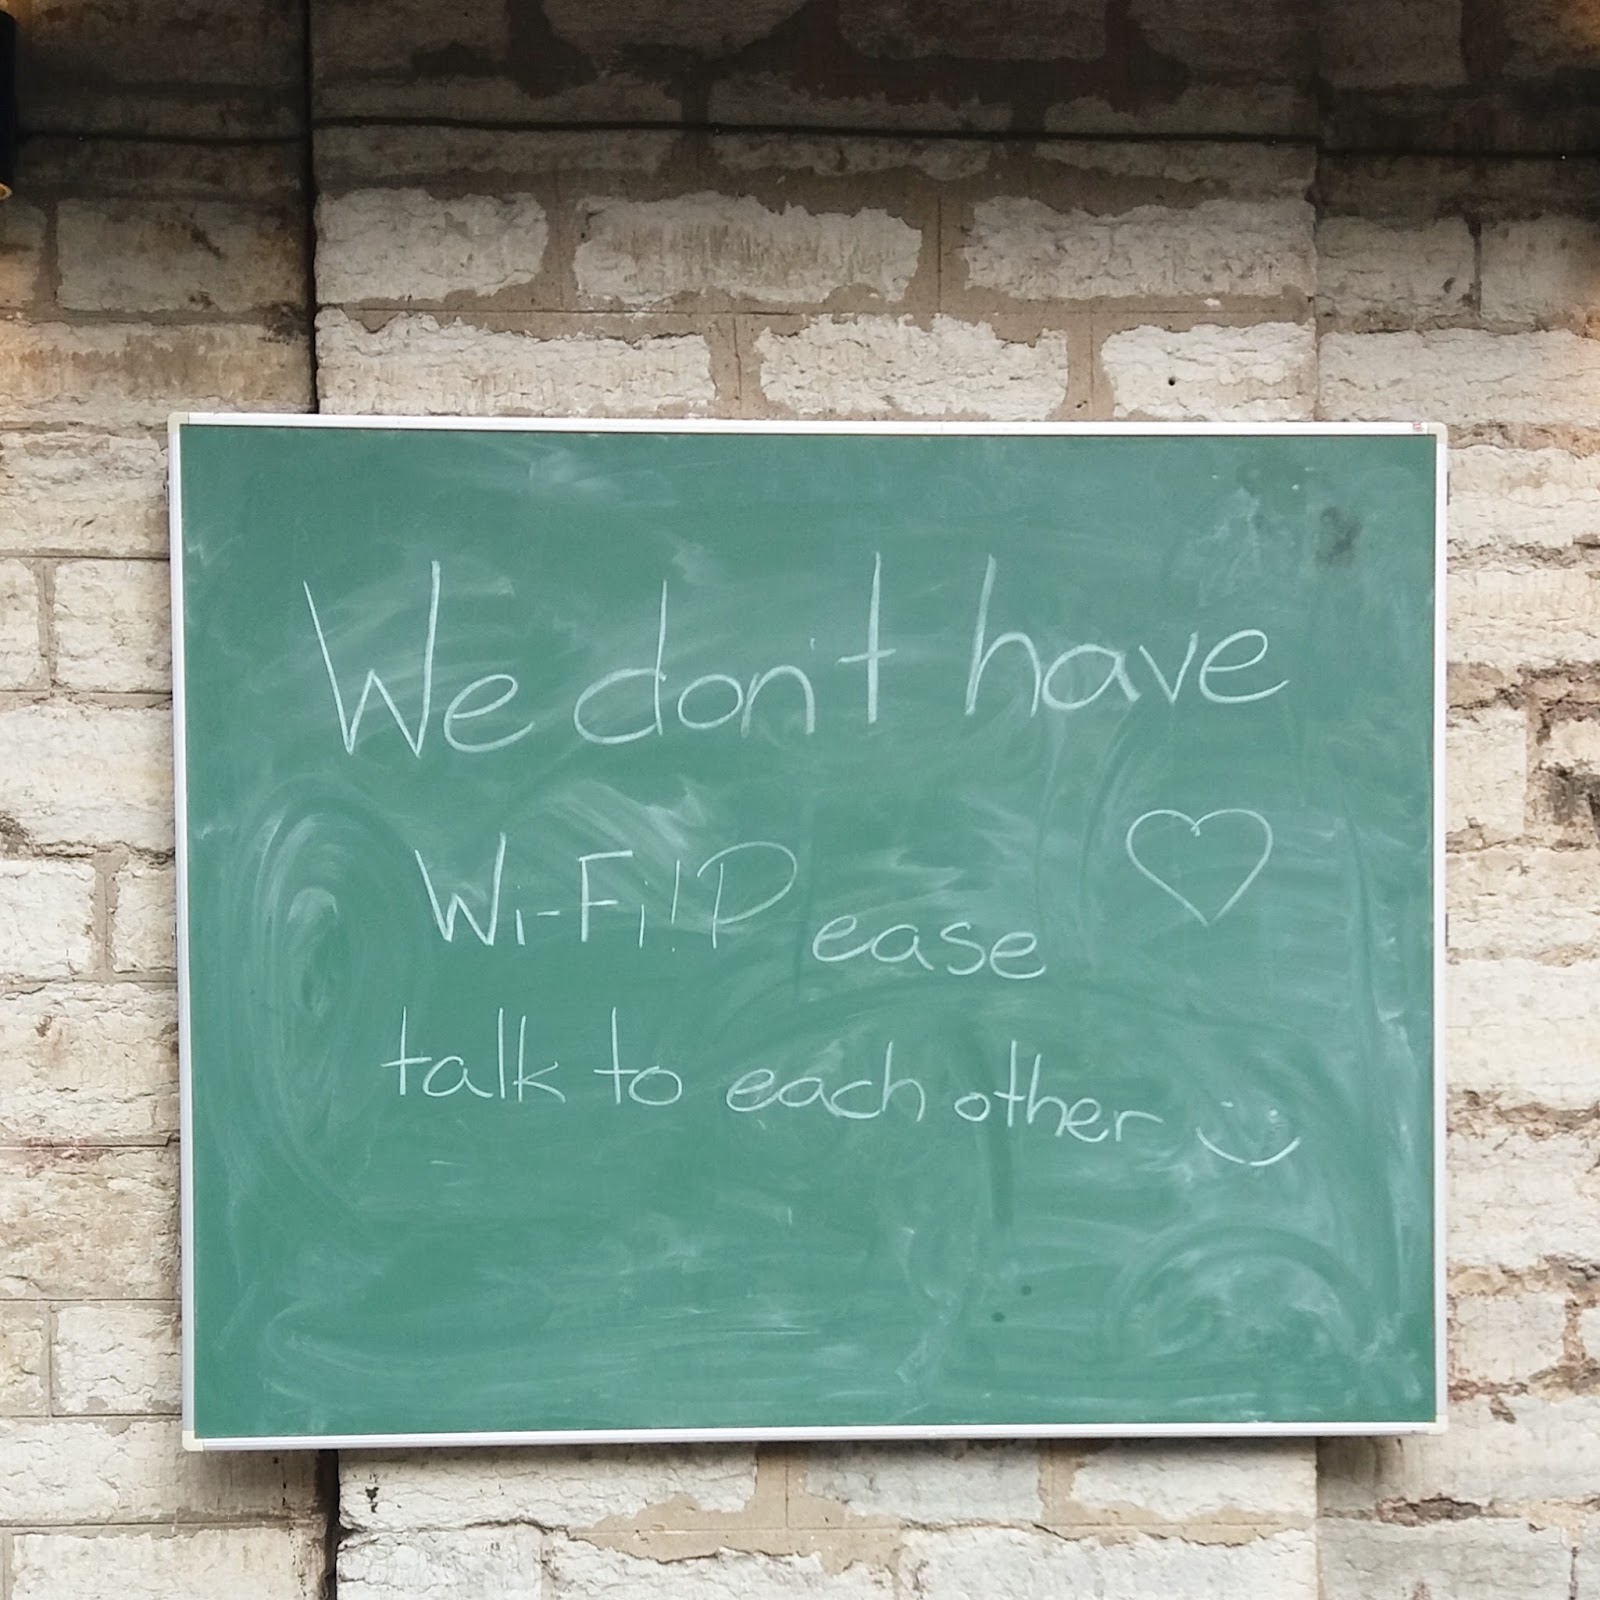 We don't have
Wi-Fi! P ease
talk to each other